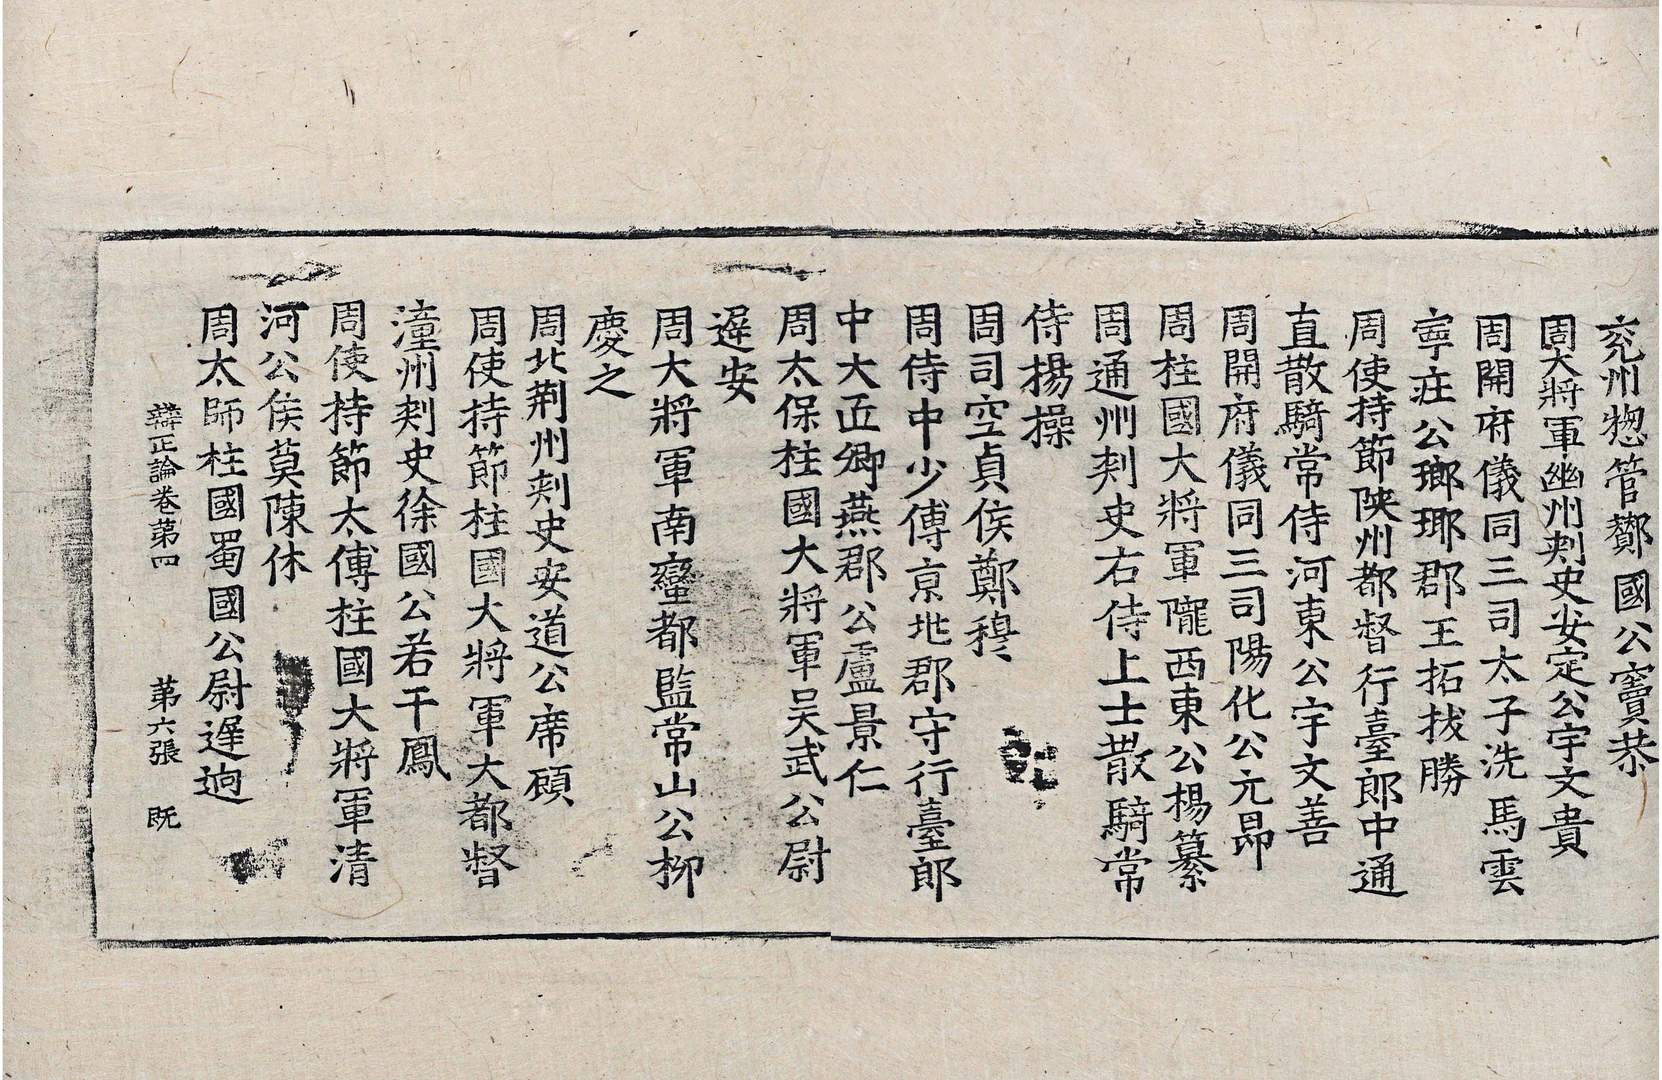 兖州惣管酇國公竇恭
周大將軍幽州刾史安定公宇文貴
周開府儀同三司太子洗馬雲
寧莊公瑯瑘郡王拓拔勝
周使持節陜州都督行臺郎中通
直散騎常侍河東公宇文善
周開府儀同三司陽化公元昴
周柱國大將軍隴西東公楊纂
周通州刾史右侍上士散騎常
侍揚操
周司空貞侯鄭穆
周侍中少傅京地郡守行臺郎
中大匠卿燕郡公盧景仁
周太保柱國大將軍吴武公尉
遟安
周大將軍南蠻都監常山公柳
慶之
周北荆州刾史安道公席頋
周使持節柱國大將軍大都督
潼州刾史徐國公若干鳳
周使持節太傅柱國大將軍清
河公侯莫陳休
周太師柱國蜀國公尉遟逈
辯正論卷第四 第六張 旣